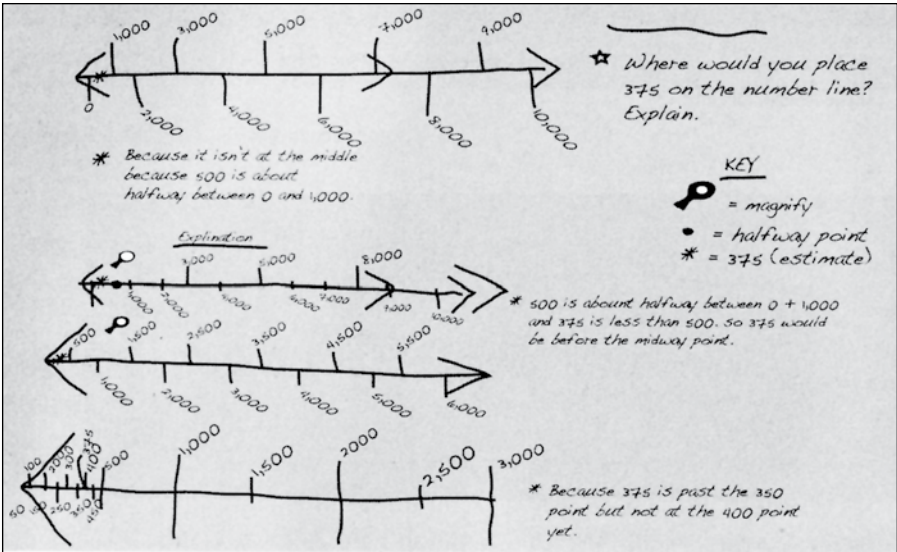 1,000 3,000 5,000 7,000 9,000
0 2,000 4,000 6,000 8,000 10,000
☆ Where would you place
375 on the number line?
Explain.
* Because it isn't at the middle
because 500 is about
halfway between 0 and 1,000.
KEY
= magnify
• = halfway point
* = 375 (estimate)
Explination
3,000 5,000 8,000
1,000 2,000 4,000 6,000 7,000 9,000 10,000
* 500 is abount halfway between 0 + 1,000
and 375 is less than 500. So 375 would
be before the midway point.
500 1,500 2,500 3,500 4,500 5,500
1,000 2,000 3,000 4,000 5,000 6,000
100 2000 300 375 400 500 1,000 1,500 2000 2,500 3,000
50 150 250 350 450
* Because 375 is past the 350
point but not at the 400 point
yet.